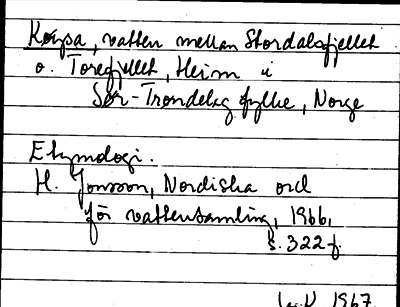 Køypa, vatten mellan Stordalsfjellet
o. Torefjellet, Heim i
Sør-Trøndelag fylke, Norge
Etymologi.
H. Jonsson, Nordiska ord
för vattensamling, 1966,
s. 322 f.
1967.